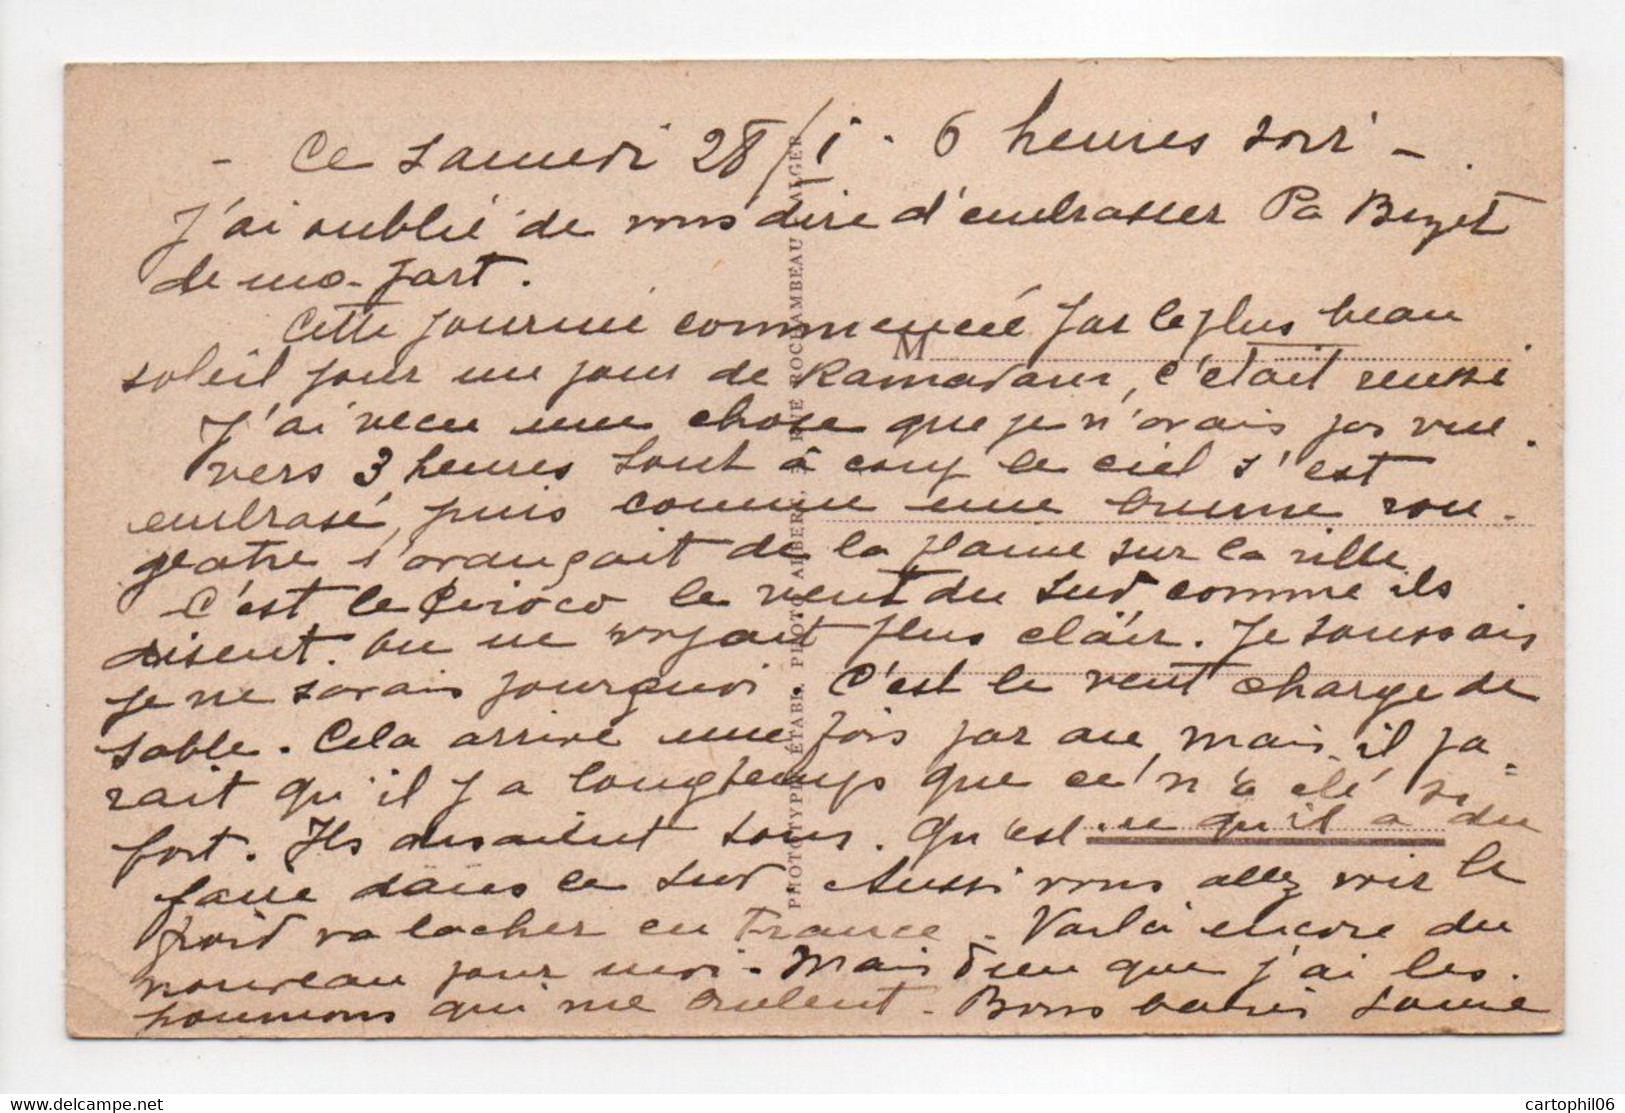 - Ce samedi 28/1 - 6 heures soir -
J'ai oublié de vous dire d'embrasser Pa Bizet
de ma part.
Cette journée commencée par le plus beau
soleil pour un jour de Ramadam, c'était reussi
J'ai vecu une chose que je n'avais pas vue.
vers 3 heures tout à coup le ciel s'est
embrasé, puis comme une brume rou-
geatre s'avançait de la plaine sur la ville
C'est le Siroco le vent du Sud comme ils
disent. On ne voyait plus clair. Je toussais
je ne savais pourquoi. C'est le vent charge de
sable. Cela arrive une fois par an, mais il pa=
rait qu'il y a longtemps que ce n'a été si
fort. Ils disaient tous. Qu'est-ce qu'il a du
faire dans le Sud. Aussi vous allez voir le
froid va lacher en France. Voilà encore du
nouveau pour moi. Mais Dieu que j'ai les
poumons qui me brulent. Bons baisers
M
PHOTOTYPIE ÉTABL. PHOTO ALBERT, 3 RUE ROCHAMBEAU ALGER
cartophil06